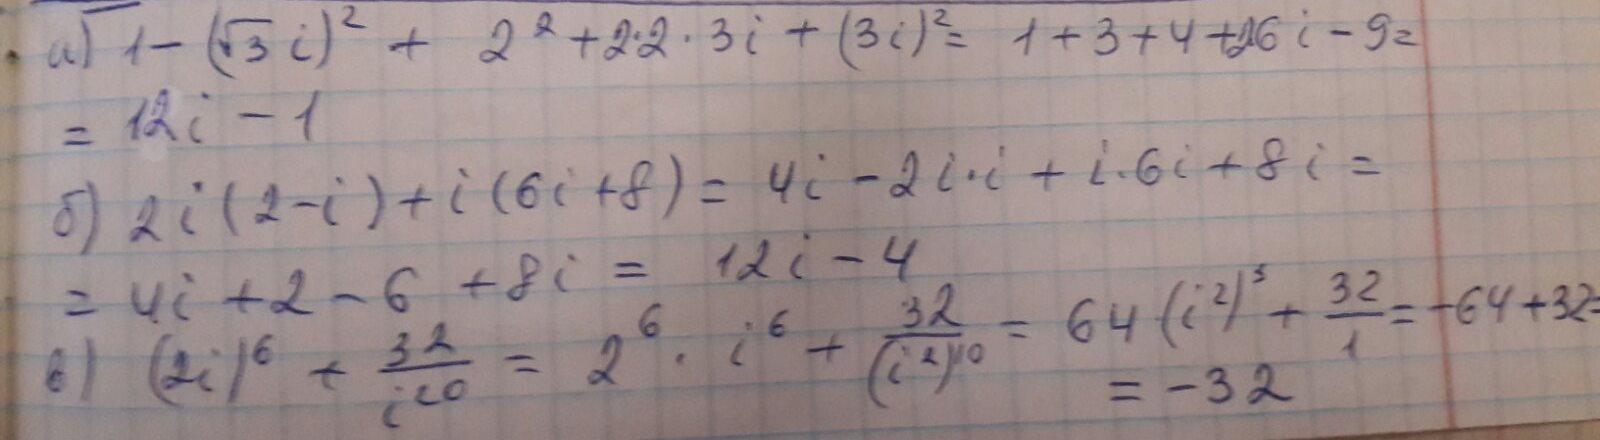 а) 1 - (√3 i)² + 2² + 2·2·3i + (3i)² = 1 + 3 + 4 + 26i - 9 =
= 12i - 1
б) 2i(2-i) + i(6i+8) = 4i - 2i·i + i·6i + 8i =
= 4i + 2 - 6 + 8i = 12i - 4
в) (2i)⁶ + 32/i²⁰ = 2⁶ · i⁶ + 32/(i²)¹⁰ = 64(i²)³ + 32/1 = -64 + 32 =
= -32